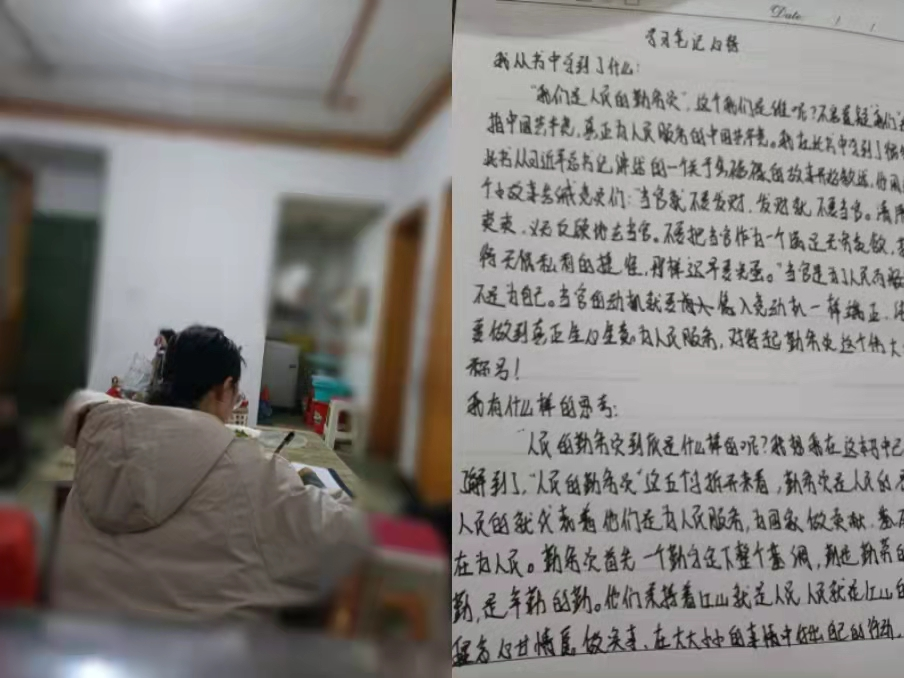 Date / /
学习笔记心得
我从书中学到了什么:
"我们是人民的勤务员",这个我们是谁呢?不容置疑"我们"
指中国共产党,真正为人民服务的中国共产党。我在此书中学到了很
此书从习近平总书记讲述的一个关于焦裕禄的故事开始叙述,他用
个小故事告诫党员们:"当官就不要发财,发财就不要当官。清
爽爽、义无反顾地去当官。不要把当官作为一个满足无穷贪欲,
待无限私利的捷径,那样迟早要完蛋。"当官是为了人民而服
不是为自己。当官的动机就要海入党动机一样端正,
要做到真正全心全意为人民服务,对得起勤务员这个伟大
称号!
我有什么样的思考:
"人民的勤务员到底是什么样的呢?我想我在这本书中已
了解到了,"人民的勤务员"这五个字拆开来看,勤务员在人民的
人民的就代表着他们是为人民服务,为国家做贡献,
在为人民。勤务员首先一个勤字定下整个基调,勤是勤劳的
勤,是辛勤的勤。他们秉持着江山就是人民人民就是江山的
心甘情愿做实事、在大大小小的事情中作出自己的行动,